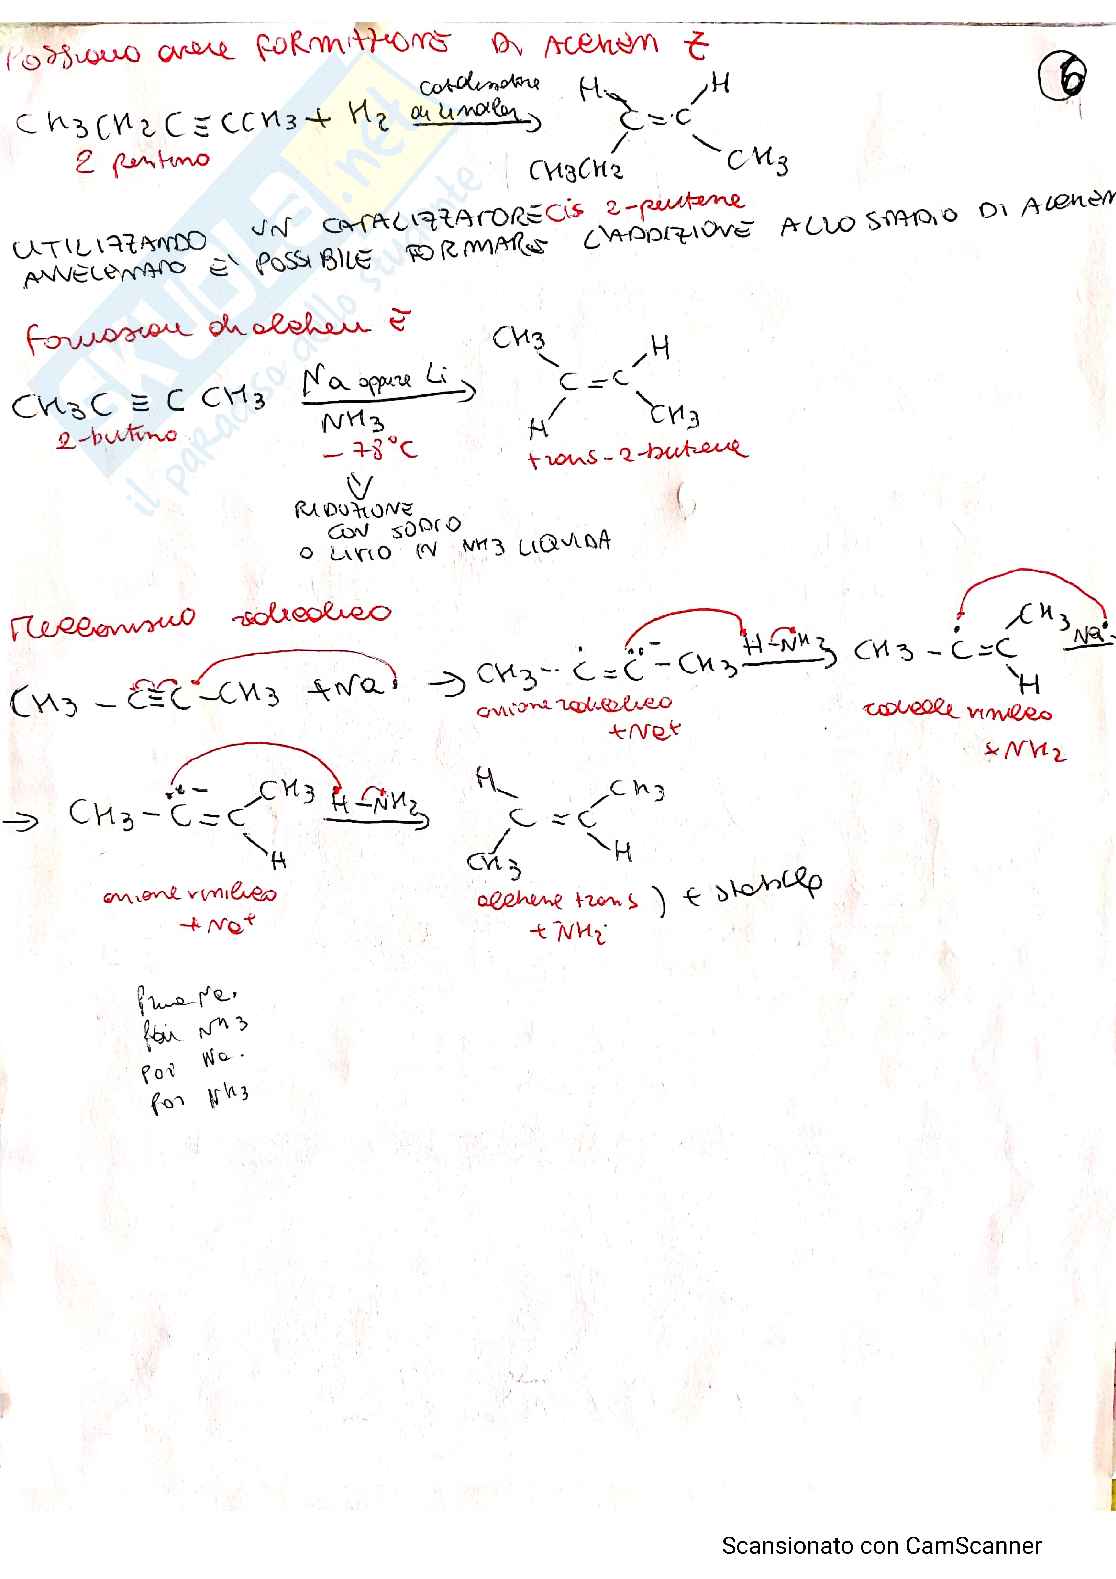 Possiamo avere FORMAZIONE DI ALCHENI Z
6
CH3CH2C≡CCH3 + H2
catalizzatore
di Lindlar
H H
C=C
CH3CH2 CH3
2 pentino
cis 2-pentene
UTILIZZANDO UN CATALIZZATORE
AVVELENATO È POSSIBILE FORMARE L'ADDIZIONE ALLO STADIO DI ALCHENE
Formazione di alcheni E
CH3C ≡ C CH3
Na oppure Li
NH3
- 78°C
CH3 H
C = C
H CH3
2-butino
trans-2-butene
RIDUZIONE
CON SODIO
O LITIO IN NH3 LIQUIDA
Meccanismo radicalico
CH3 - C≡C - CH3 + Na·
CH3 - C = C - CH3
H-NH2
CH3 - C = C
CH3
H
Na·
anione radicalico
+Na+
radicale vinilico
+ NH2
CH3 - C = C
CH3
H
H-NH2
H CH3
C = C
CH3 H
anione vinilico
+ Na+
alchene trans ) + stabile
+ NH2
Prima Na.
Poi NH3
Poi Na.
Poi NH3
SKUOLA.net
il paradiso dello studente
Scansionato con CamScanner